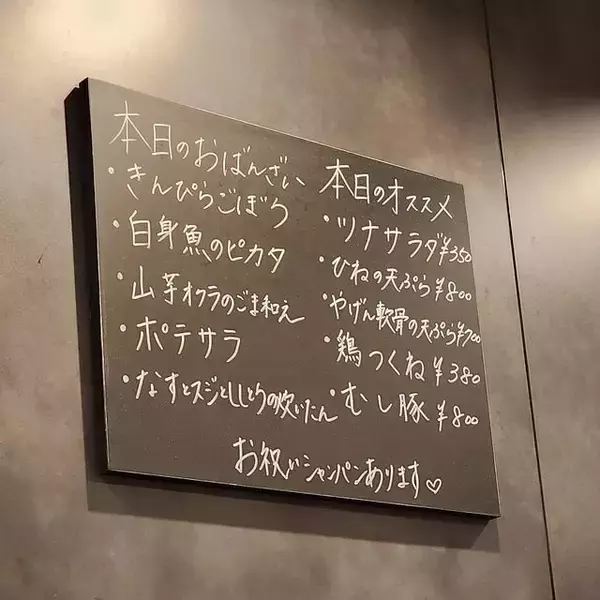 本日のおばんざい
・きんぴらごぼう
・白身魚のピカタ
・山芋オクラのごま和え
・ポテサラ
・なすとスジとししとうの炊いたん
本日のオススメ
・ツナサラダ¥350
・ひねの天ぷら¥800
・やげん軟骨の天ぷら¥700
・鶏つくね¥380
・むし豚¥800
お祝いシャンパンあります♡